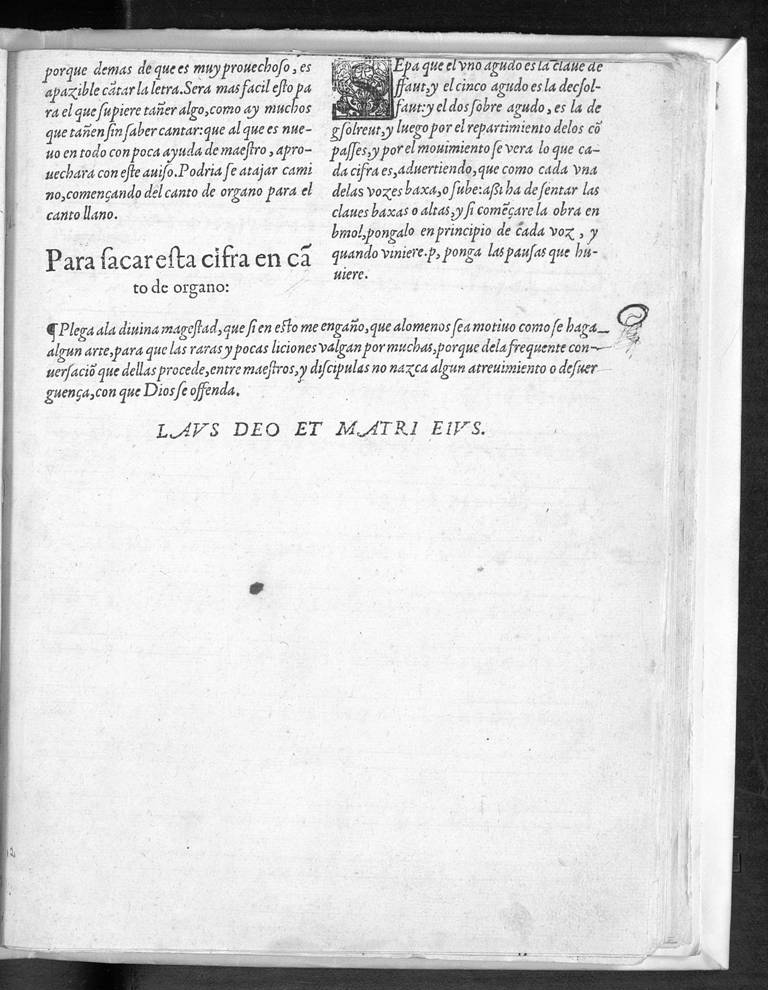 porque demas de que es muy prouechoso, es
apazible cãtar la letra. Sera mas facil esto pa
ra el que supiere tañer algo, como ay muchos
que tañen sin saber cantar: que al que es nue-
uo en todo con poca ayuda de maestro, apro-
uechara con este auiso. Podria se atajar cami
no, començando del canto de organo para el
canto llano.
Para sacar esta cifra en cã
to de organo:
SEpa que el vno agudo es la claue de
ffaut, y el cinco agudo es la decsol-
faut: y el dos sobre agudo, es la de
gsolreut, y luego por el repartimiento delos cõ
passes, y por el mouimiento se vera lo que ca-
da cifra es, aduertiendo, que como cada vna
delas vozes baxa, o sube: assi ha de sentar las
claues baxas o altas, y si comẽçare la obra en
bmol, pongalo en principio de cada voz, y
quando viniere.p, ponga las pausas que hu-
uiere.
¶ Plega ala diuina magestad, que si en esto me engaño, que alomenos sea motiuo como se haga
algun arte, para que las raras y pocas liciones valgan por muchas, porque dela frequente con-
uersaciõ que dellas procede, entre maestros, y discipulas no nazca algun atreuimiento o desuer
guença, con que Dios se offenda.
LAVS DEO ET MATRI EIVS.